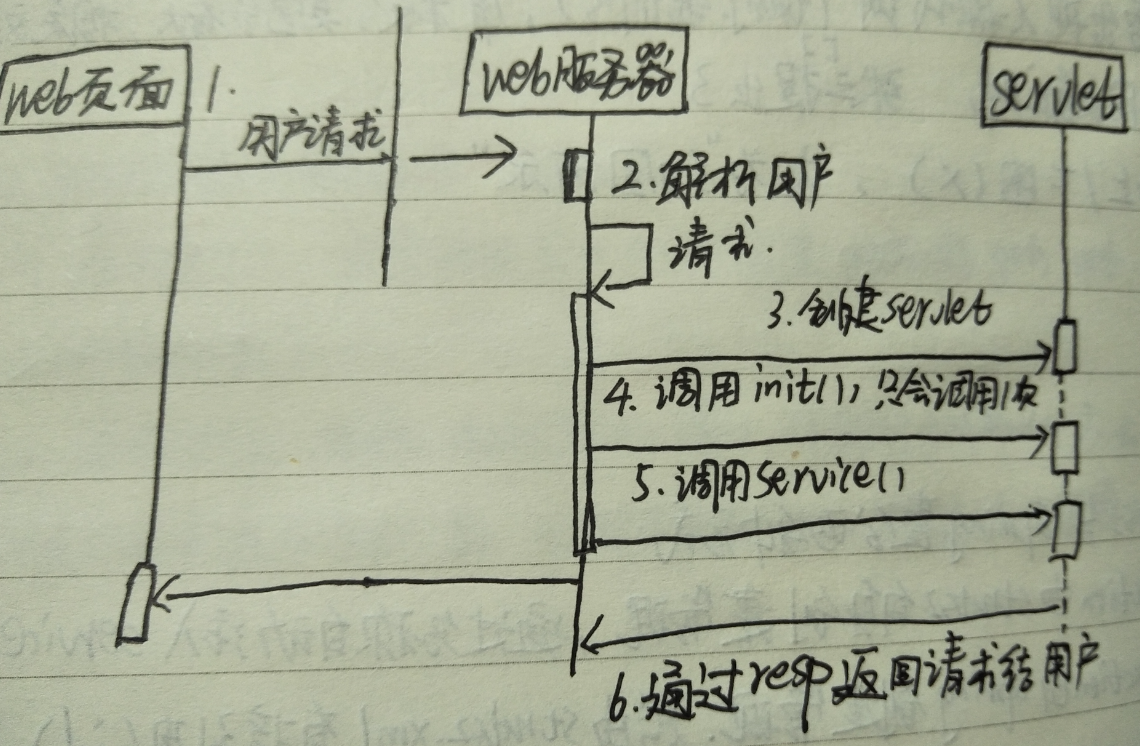 web页面
web服务器
servlet
1.
用户请求
2.解析用户
请求.
3.创建servlet
4.调用init(),只会调用1次
5.调用service()
6.通过resp返回请求给用户